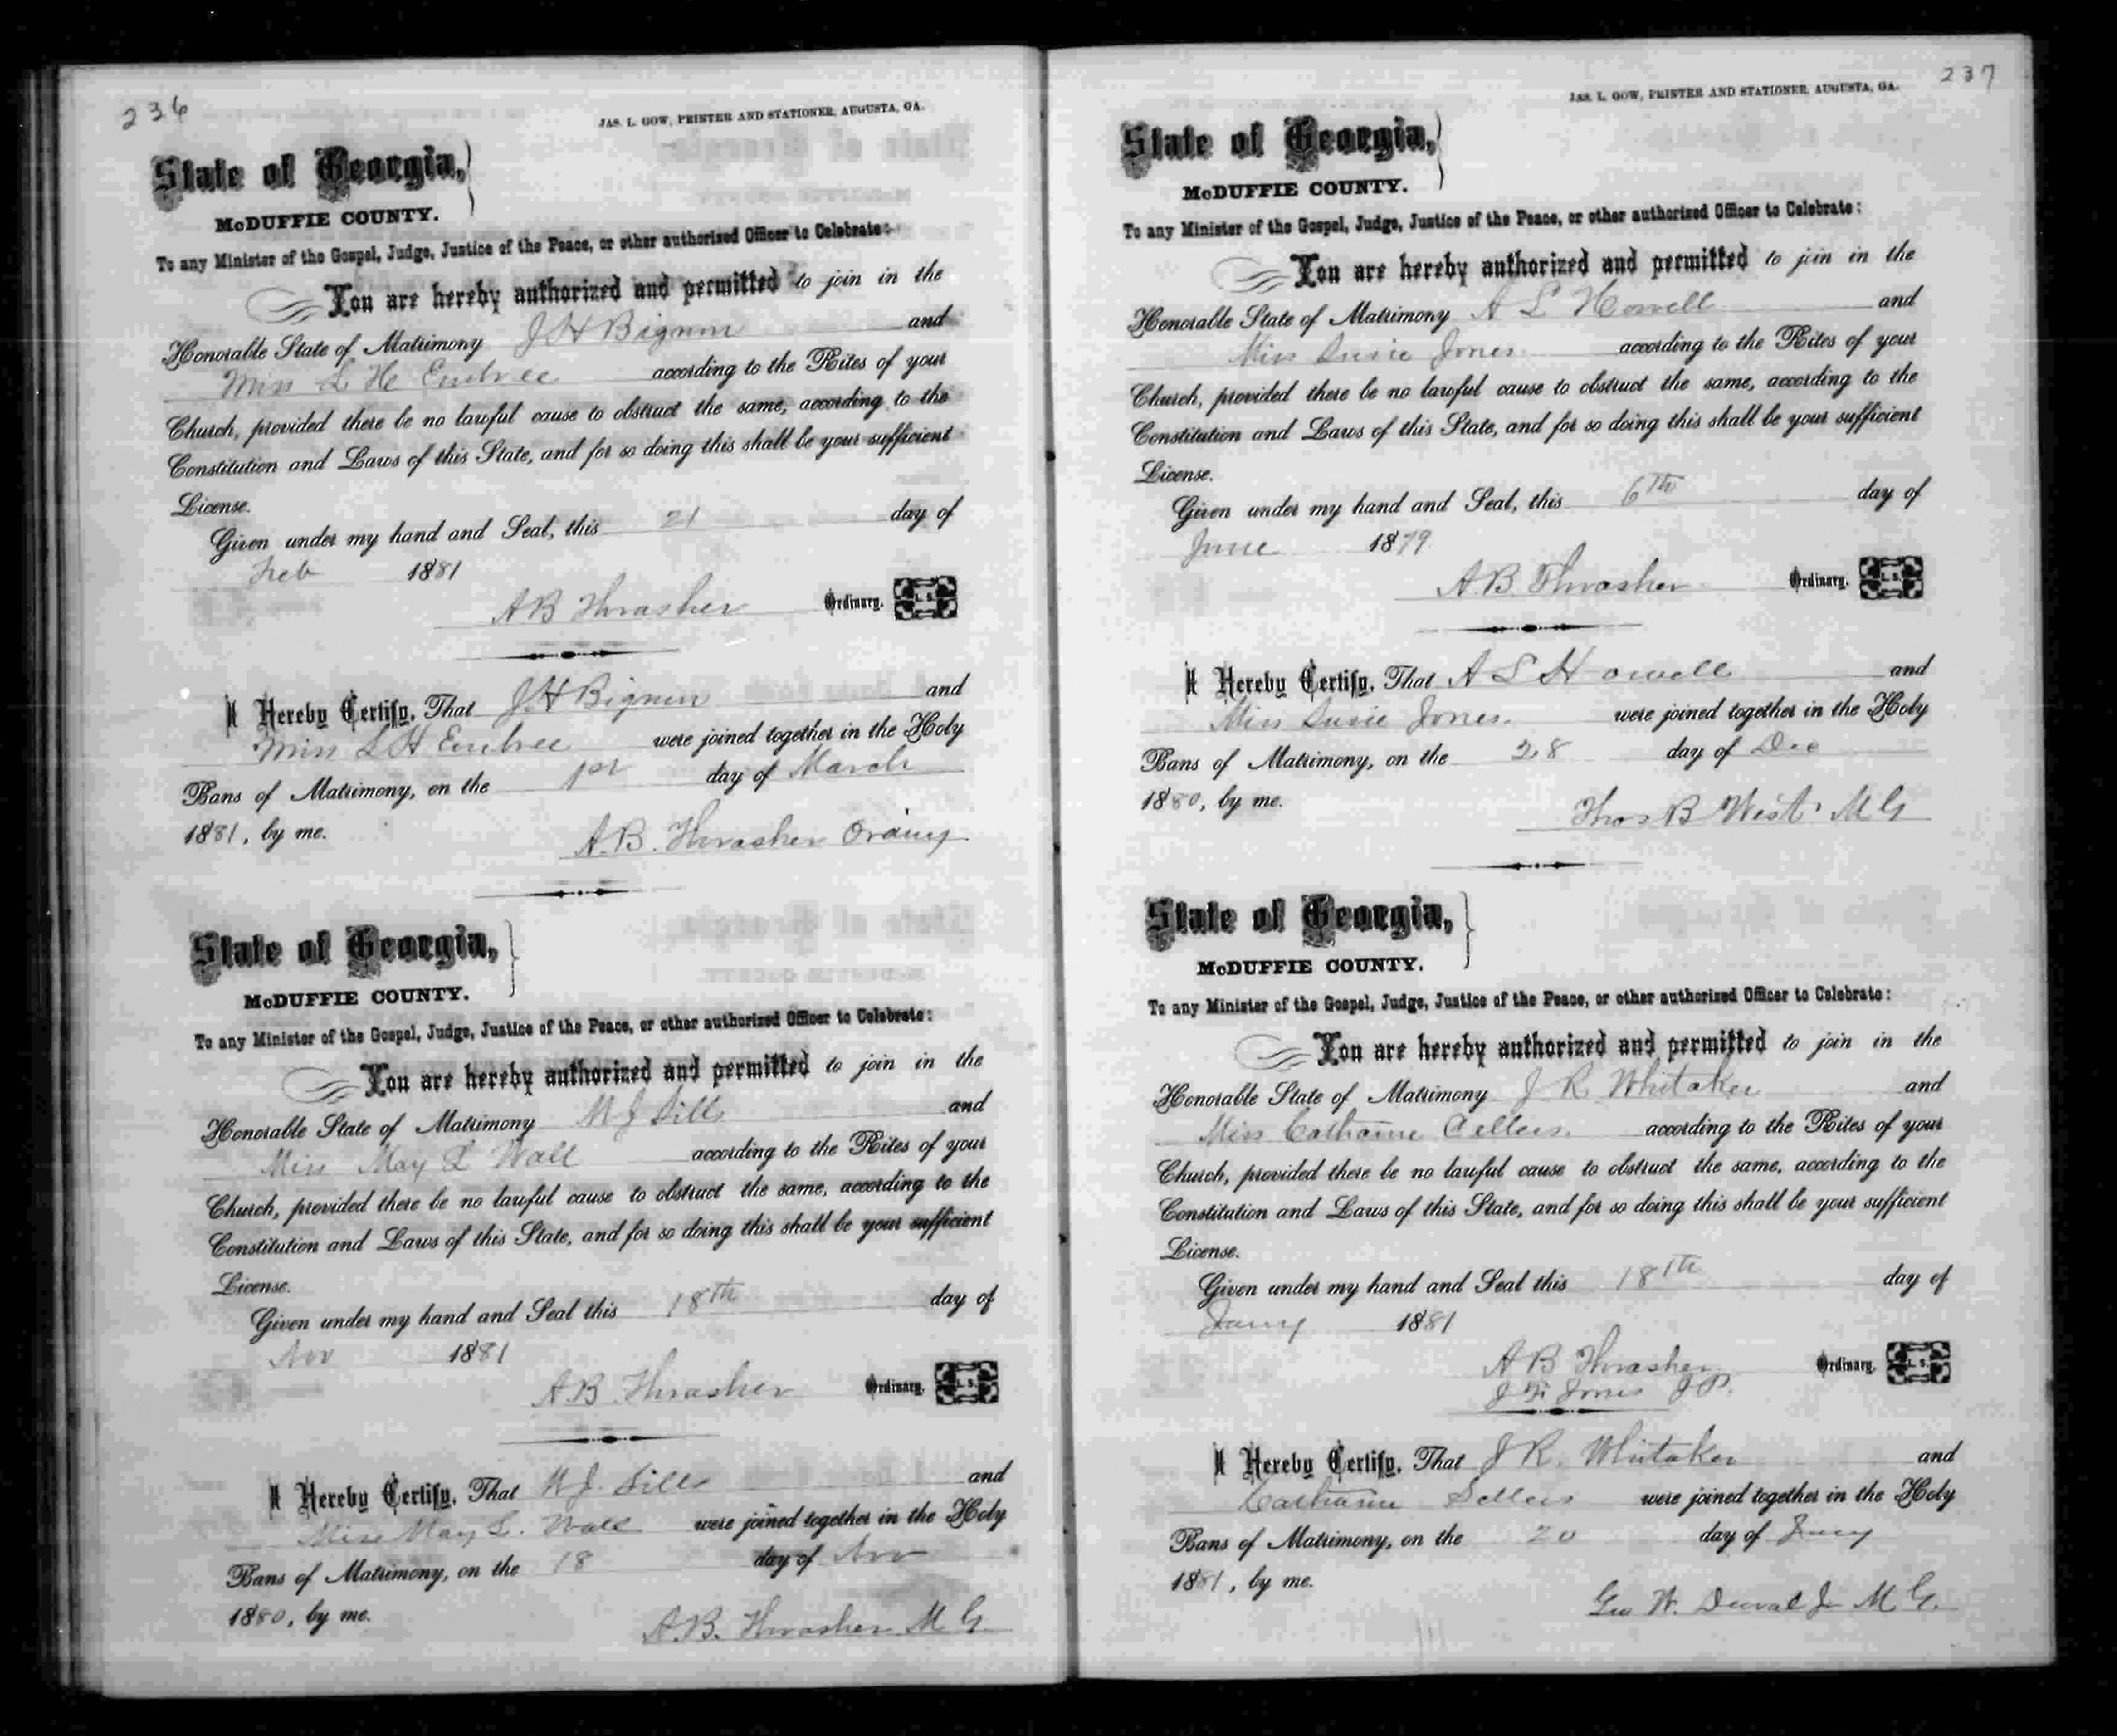 236
JAS. L. GOW, PRINTER AND STATIONER, AUGUSTA, GA.
State of Georgia,
McDUFFIE COUNTY.
To any Minister of the Gospel, Judge, Justice of the Peace, or other authorized Officer to Celebrate:
You are hereby authorized and permitted to join in the
Honorable State of Matrimony J H Bignon and
Miss L H Embree according to the Rites of your
Church, provided there be no lawful cause to obstruct the same, according to the
Constitution and Laws of this State, and for so doing this shall be your sufficient
License.
Given under my hand and Seal, this 21 day of
Feb 1881
A B Thrasher Ordinary. L. S.
I Hereby Certify, That J H Bignon and
Miss L H Embree were joined together in the Holy
Bans of Matrimony, on the 1st day of March
1881, by me.
A. B. Thrasher Ordiny
State of Georgia,
McDUFFIE COUNTY.
To any Minister of the Gospel, Judge, Justice of the Peace, or other authorized Officer to Celebrate:
You are hereby authorized and permitted to join in the
Honorable State of Matrimony and
Miss May L Wall according to the Rites of your
Church, provided there be no lawful cause to obstruct the same, according to the
Constitution and Laws of this State, and for so doing this shall be your sufficient
License.
Given under my hand and Seal this 18th day of
Nov 1881
A B. Thrasher Ordinary. L. S.
I Hereby Certify, That and
Miss May L. Wall were joined together in the Holy
Bans of Matrimony, on the 18 day of Nov
1880, by me.
A. B. Thrasher M G.
237
JAS. L. GOW, PRINTER AND STATIONER, AUGUSTA, GA.
State of Georgia,
McDUFFIE COUNTY.
To any Minister of the Gospel, Judge, Justice of the Peace, or other authorized Officer to Celebrate:
You are hereby authorized and permitted to join in the
Honorable State of Matrimony A L Howell and
Miss Susie Jones according to the Rites of your
Church, provided there be no lawful cause to obstruct the same, according to the
Constitution and Laws of this State, and for so doing this shall be your sufficient
License.
Given under my hand and Seal, this 6th day of
June 1879
A. B. Thrasher Ordinary. L. S.
I Hereby Certify, That A L Howell and
Miss Susie Jones. were joined together in the Holy
Bans of Matrimony, on the 28 day of Dec
1880, by me.
Thos B West M G
State of Georgia,
McDUFFIE COUNTY.
To any Minister of the Gospel, Judge, Justice of the Peace, or other authorized Officer to Celebrate:
You are hereby authorized and permitted to join in the
Honorable State of Matrimony J R Whitaker and
Miss Catharine Cellers. according to the Rites of your
Church, provided there be no lawful cause to obstruct the same, according to the
Constitution and Laws of this State, and for so doing this shall be your sufficient
License.
Given under my hand and Seal this 18th day of
Jany 1881
A B Thrasher Ordinary. L. S.
J Jones J P.
I Hereby Certify, That J R. Whitaker and
Catharine Sellers were joined together in the Holy
Bans of Matrimony, on the 20 day of Jany
1881, by me.
Geo W. Duval Jr M G.